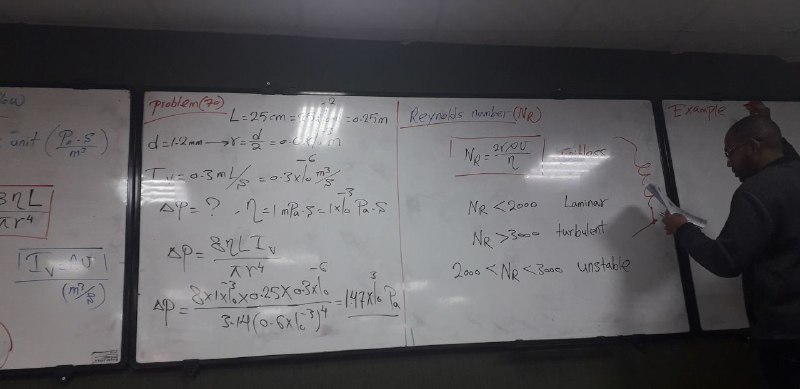 unit (Pa·S/m³)
8ηL/πr⁴
I_v
(m³/S)
problem(7a)
L=25cm=25×10⁻²m=0.25m
d=1.2mm→r=d/2=0.6×10⁻³m
I_v=0.3mL/S=0.3×10⁻⁶m³/S
ΔP=? , η=1mPa·S=1×10⁻³Pa·S
ΔP=8ηLI_v/πr⁴
ΔP=8×1×10⁻³×0.25×0.3×10⁻⁶/3.14(0.6×10⁻³)⁴=1.47×10³Pa
Reynolds number(N_R)
N_R=2rρv/η unitless
N_R<2000 Laminar
N_R>3000 turbulent
2000<N_R<3000 unstable
Example